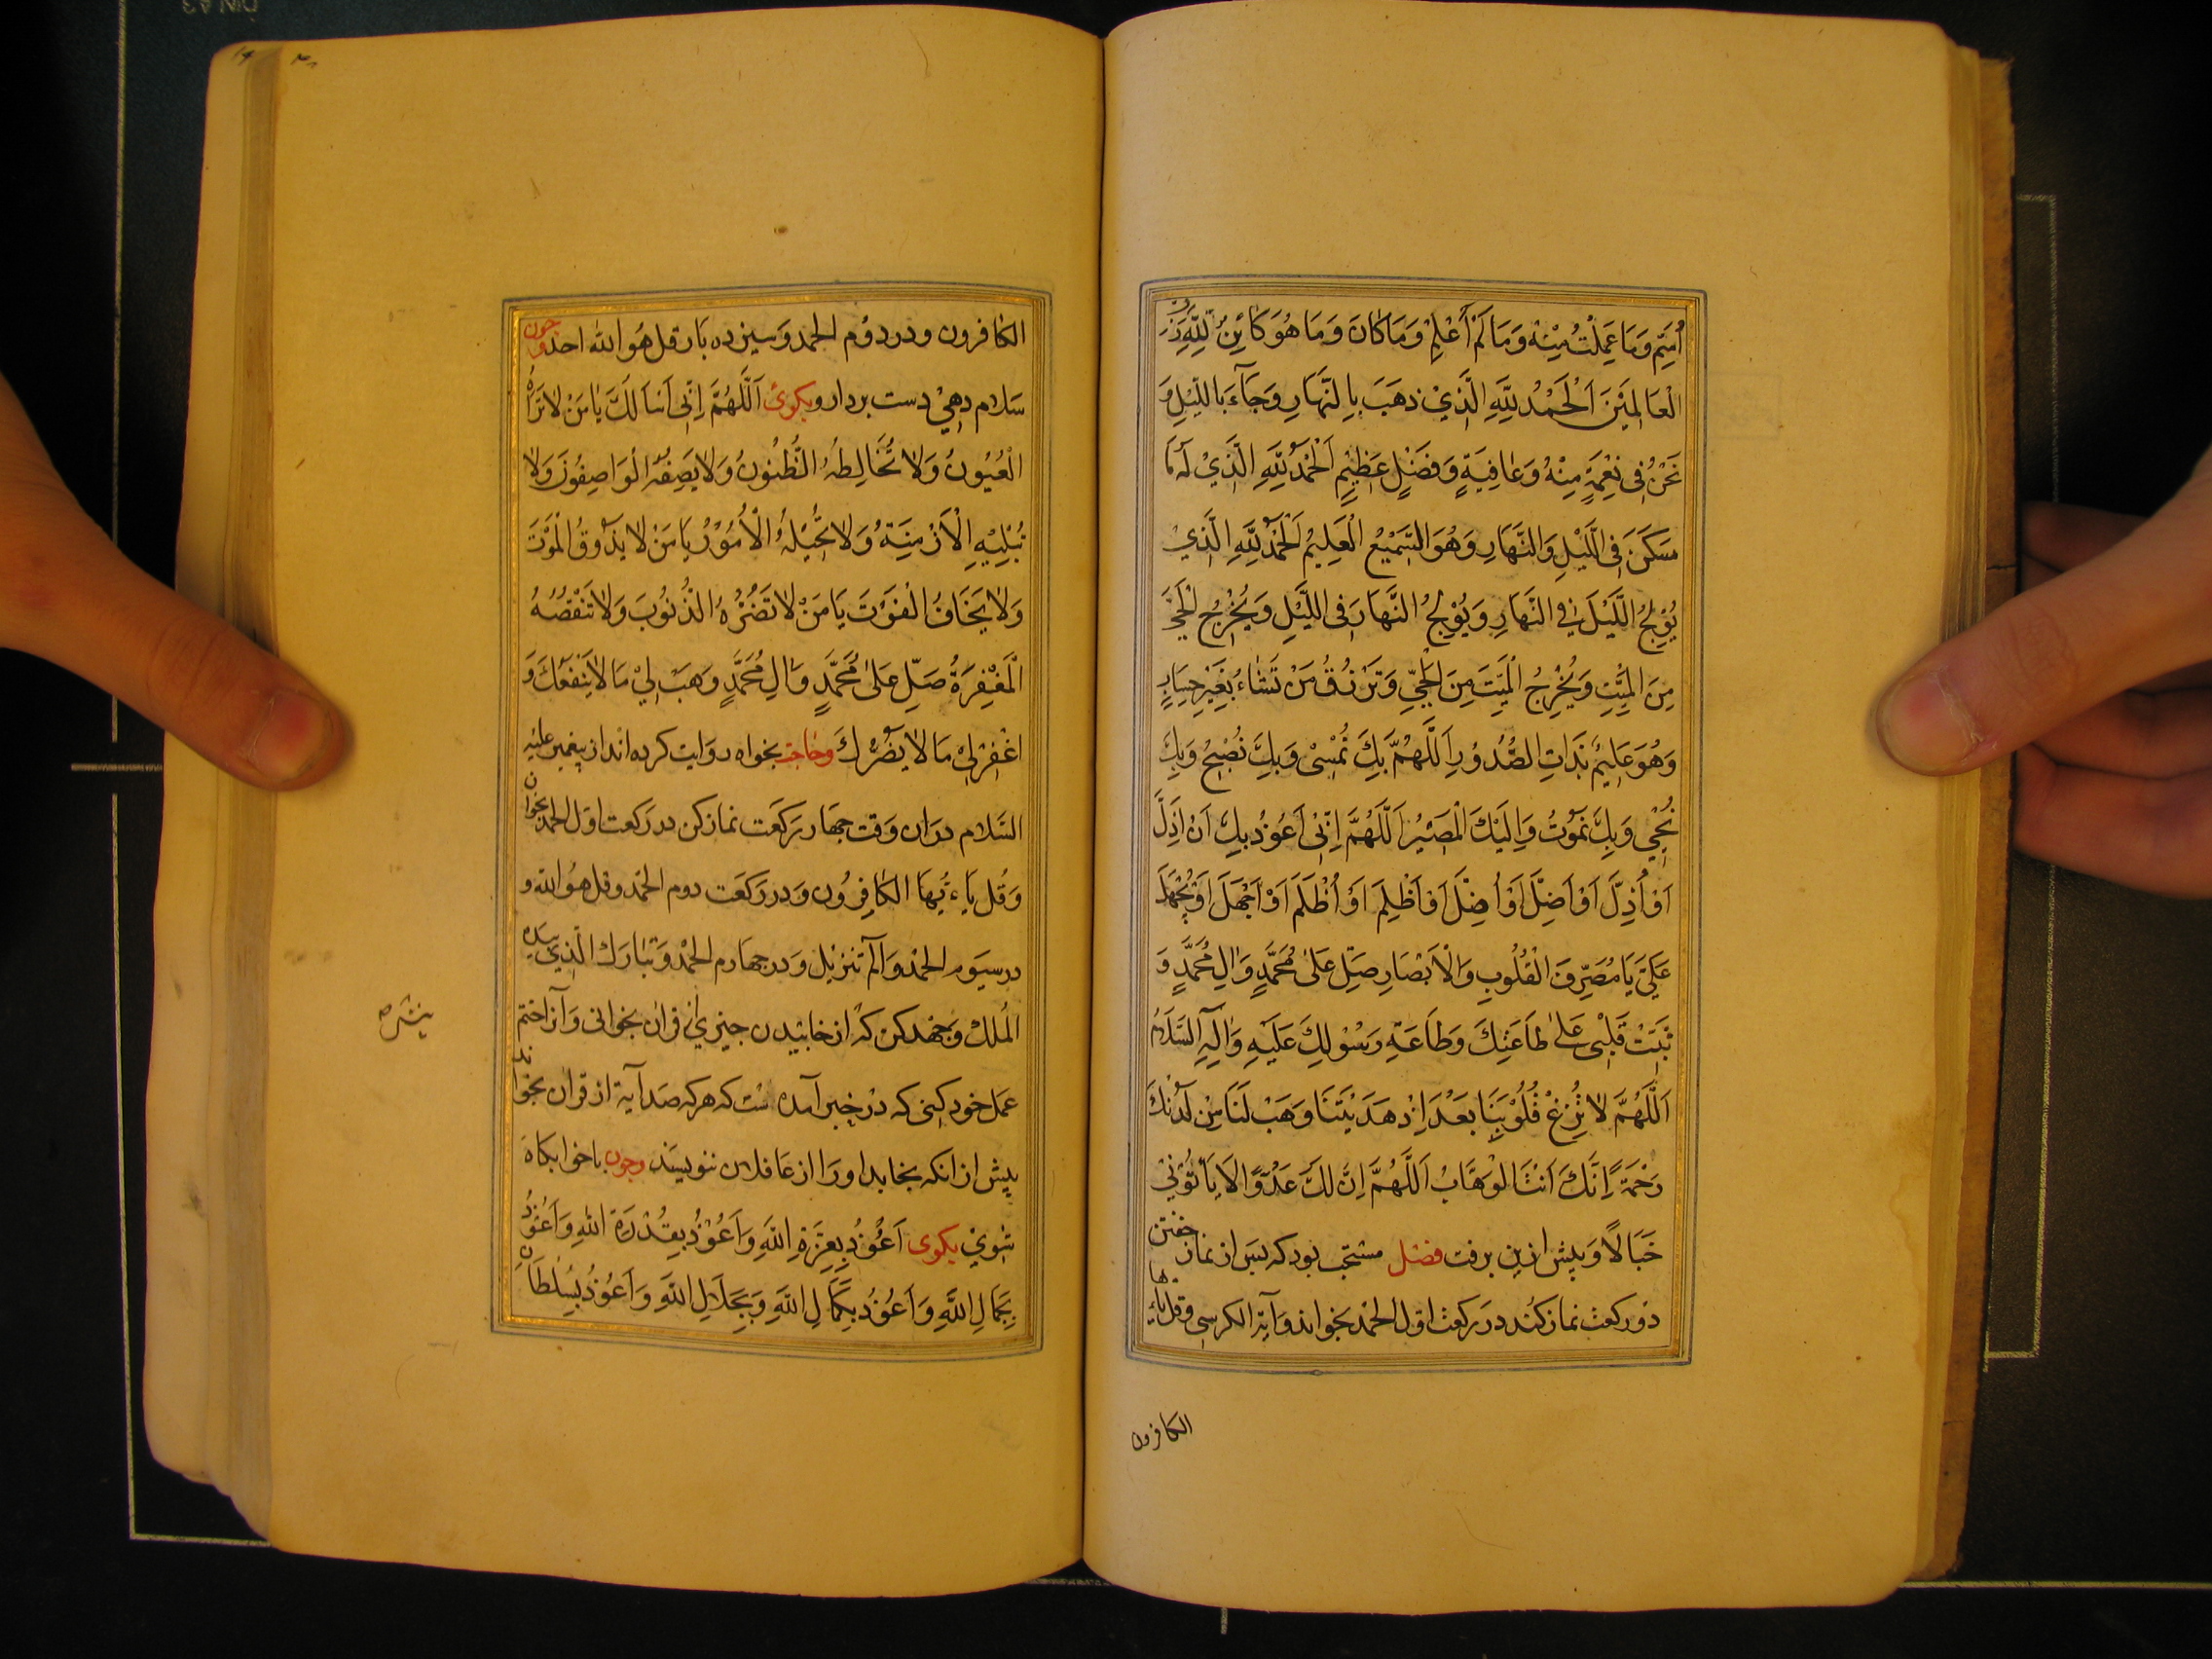 اُمَمٍ وَمَا عَمِلْتُ مِنْهُ وَمَا لَمْ أَعْلَمْ وَمَا كَانَ وَمَا هُوَ كَائِنٌ لِلّٰهِ رَبِّ
الْعَالَمِيْنَ اَلْحَمْدُ لِلّٰهِ الَّذِيْ ذَهَبَ بِالنَّهَارِ وَجَآءَ بِاللَّيْلِ وَ
نَحْنُ فِى نِعْمَةٍ مِنْهُ وَعَافِيَةٍ وَفَضْلٍ عَظِيْمٍ اَلْحَمْدُ لِلّٰهِ الَّذِيْ لَهُ مَا
سَكَنَ فِى اللَّيْلِ وَالنَّهَارِ وَهُوَ السَّمِيْعُ الْعَلِيْمُ اَلْحَمْدُ لِلّٰهِ الَّذِيْ
يُوْلِجُ اللَّيْلَ فِي النَّهَارِ وَيُوْلِجُ النَّهَارَ فِى اللَّيْلِ وَيُخْرِجُ الْحَيَّ
مِنَ الْمَيِّتِ وَيُخْرِجُ الْمَيِّتَ مِنَ الْحَيِّ وَتَرْزُقُ مَنْ تَشَاءُ بِغَيْرِ حِسَابٍ
وَهُوَ عَلِيْمٌ بِذَاتِ الصُّدُوْرِ اَللّٰهُمَّ بِكَ نُمْسِىْ وَبِكَ نُصْبِحُ وَبِكَ
نُحْيِيْ وَبِكَ نَمُوْتُ وَاِلَيْكَ الْمَصِيْرُ اَللّٰهُمَّ اِنِّىْ اَعُوْذُ بِكَ اَنْ اَذِلَّ
اَوْ اُذِلَّ اَوْ اَضِلَّ اَوْ اُضِلَّ اَوْ اَظْلِمَ اَوْ اُظْلَمَ اَوْ اَجْهَلَ اَوْ يُجْهَلَ
عَلَيَّ يَا مُصَرِّفَ الْقُلُوبِ وَالْاَبْصَارِ صَلِّ عَلىٰ مُحَمَّدٍ وَاٰلِ مُحَمَّدٍ وَ
ثَبِّتْ قَلْبِىْ عَلىٰ طَاعَتِكَ وَطَاعَةِ رَسُوْلِكَ عَلَيْهِ وَاٰلِهِ السَّلَامُ
اَللّٰهُمَّ لَا تُزِغْ قُلُوْبَنَا بَعْدَ اِذْ هَدَيْتَنَا وَهَبْ لَنَا مِنْ لَدُنْكَ
رَحْمَةً اِنَّكَ اَنْتَ الْوَهَّابُ اَللّٰهُمَّ اِنَّ لَكَ عَدُوًّا لَا يَأْتُوْنِيْ
خَبَالًا وَپيش ازين برفت فضل مستحب بود كه پس از نماز خفتن
دو ركعت نماز كند در ركعت اوّل الحمد بخواند وآية الكرسى وقل ياءيّها
الكافرون
الكافرون ودر دوُم الحمد وسيزده بار قل هو الله احد وچون
سَلام دهيْ دست بردار وبكوئ اَللّٰهُمَّ اِنِّى اَسْاَلُكَ يَا مَنْ لَا تَرَاهُ
الْعُيُونُ وَلَا تُخَالِطُهُ الظُّنُونُ وَلَا يَصِفُهُ الْوَاصِفُونَ وَلَا
تُبْلِيْهِ الْاَزْمِنَةُ وَلَا تُحِيْلُهُ الْاُمُوْرُ يَا مَنْ لَا يَذُوقُ الْمَوْتَ
وَلَا يَخَافُ الْفَوْتَ يَا مَنْ لَا تَضُرُّهُ الذُّنُوبُ وَلَا تَنْقُصُهُ
الْمَغْفِرَةُ صَلِّ عَلىٰ مُحَمَّدٍ وَاٰلِ مُحَمَّدٍ وَهَبْ لِيْ مَا لَا يَنْفَعُكَ وَ
اغْفِرْ لِيْ مَا لَا يَضُرُّكَ وحاجت بخواه روايت كرده اند از پيغمبر عليه
السّلام در ان وقت چهار ركعت نماز كن در ركعت اوّل الحمد بخوان
وَقُل ياءيُّهَا الكافِرُون وَدر ركعت دوم الحمد وقل هُوَ الله و
در سيوم الحمد والم تنزيل وَدر چهارم الحمد وَتبارك الّذي بيده
الملك وَجهد كن كه از خابيدن چيزي از قران بخوانى وَآنرا ختم
عمل خود كنى كه در خبر آمده ست كه هر كه صد آية از قران بخواند
پيش از انكه بخابد او را از غافلان ننويسند وچون باخوابكاه
شوي بكوى اَعُوْذُ بِعِزَّةِ اللّٰهِ وَاَعُوْذُ بِقُدْرَةِ اللّٰهِ وَاَعُوْذُ
بِجَمَالِ اللّٰهِ وَاَعُوْذُ بِكَمَالِ اللّٰهِ وَبِجَلَالِ اللّٰهِ وَاَعُوْذُ بِسُلْطَانِ